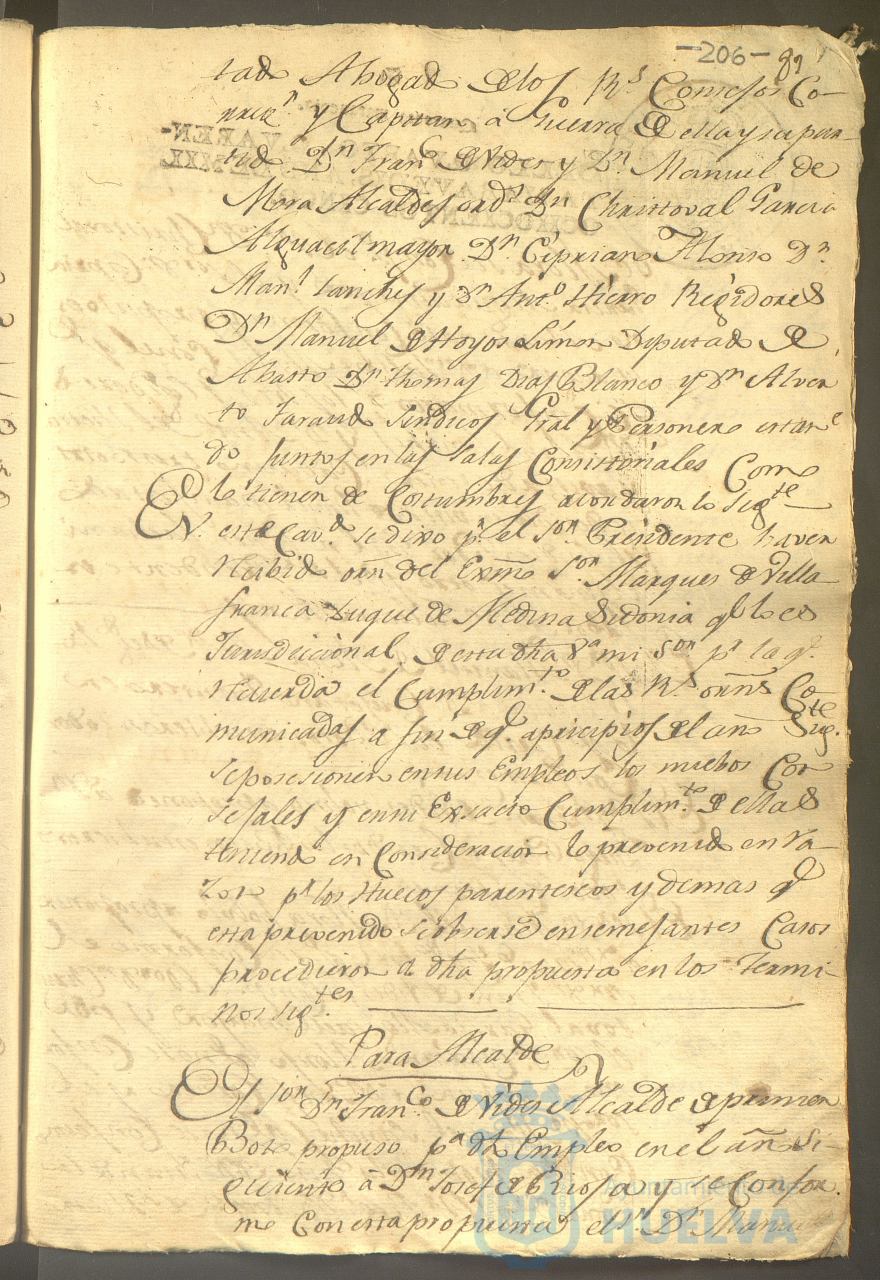 -206- 89
tad Abogad de los Rs Consejos Co-
rrexr y Capitan â Guerra de ella y su par-
tid Dn Franco de Vides y Dn Manuel de
Mora Alcaldes ords Dn Christoval Garcia
Alguacil mayor Dn Ciprian Alonso Dn
Manl Sanches y Dn Anto Hierro Regidores
Dn Manuel de Hoyos Limon Diputad de
Abasto Dn Thomas Dias Blanco y Dn Alver
to Faraud Sindicos Gral y Personero estan
do juntos en las Salas Consistoriales Como
lo tienen de Costumbres acordaron lo sigte
En este Cavdo se dixo pr el Sor Presidente haver
resibid orn del Exmo Sor Marques de Villa
franca Duque de Medina Sidonia ql lo es
Jurisdiccional de esta dha Va mi Sor pr la ql
recuerda el Cumplimto de las Rs ornes Co
municadas a fin de ql a pricipios del año Sigte
se posesionen en sus Empleos los nuebos Con
sejales y en su Exsacto Cumplimto de ellas
teniend en Consideracion lo prevenid en ra-
zon pr los Huecos parentescos y demas ql
esta prevenido se observe en semejantes Casos
procedieron a dha propuesta en los Termi
nos sigtes
Para Alcalde
El Sor Dn Franco de Vides Alcalde de primer
Boto propuso pa dho Empleo en el añ Si
guiente â Dn Josef de Riosa y se Confor
mo Con esta propuesta el Sr Dn Manu
Ayuntamiento de
HUELVA